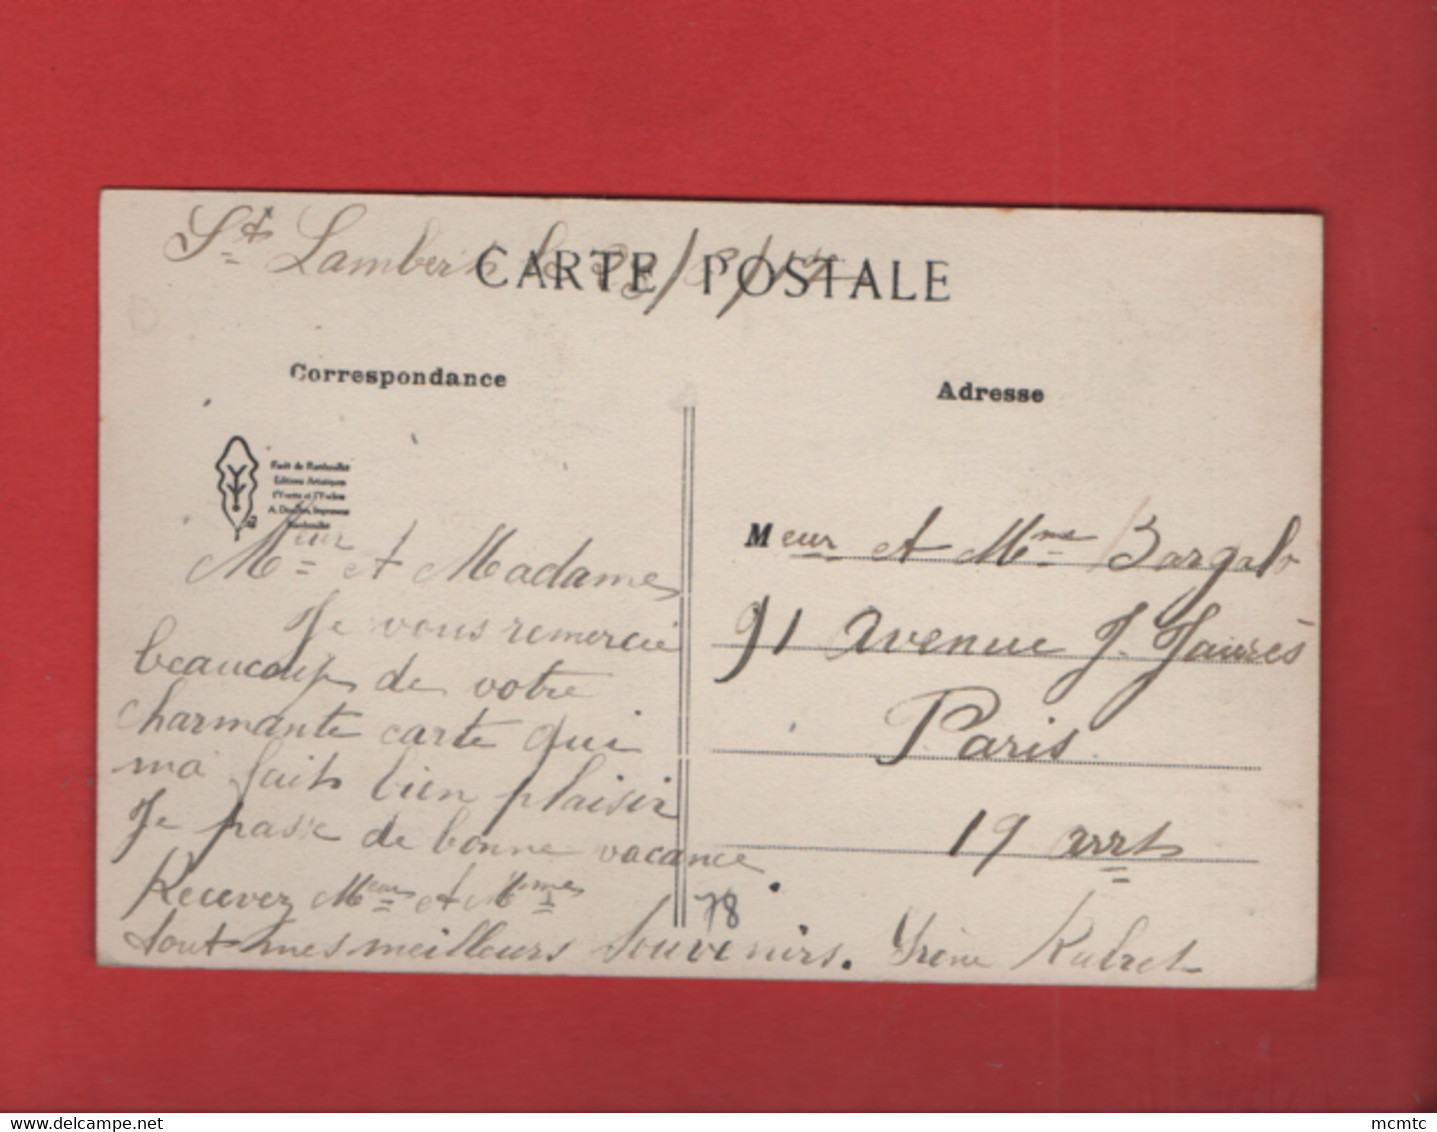 St Lambert le
CARTE POSTALE
Correspondance
Adresse
Forêt de Rambouillet
Editions Artistiques
l'Yvette et l'Yveline
A. Douillet, Imprimeur
Rambouillet
Meur et Madame
Je vous remercie
beaucoup de votre
charmante carte qui
ma fait bien plaisir
Je passe de bonne vacance.
Recevez Meur et Mme
tout mes meilleurs Souvenirs. Irène
Meur et Mme
91 avenue J. Jaurès
Paris
19 arrt
78
www.delcampe.net
mcmtc